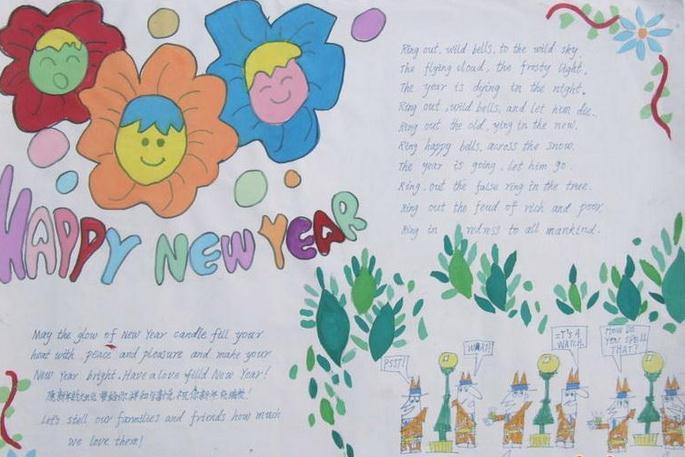 HAPPY NEW YEAR
Ring out, wild bells, to the wild sky
The flying cloud, the frosty light,
The year is dying in the night.
Ring out, wild bells, and let him die.
Ring out the old, ying in the new.
Ring happy bells, across the snow.
The year is going, let him go.
Ring out the false ring in the true.
Ring out the feud of rich and poor
Ring in redress to all mankind.
May the glow of New Year candle fill your
heat with peace and pleasure and make your
New Year bright. Have a love filld New Year!
Let's stell our families and friends how much
we love them!
PSST!
WHAT!
IT'S A
WATCH.
HOW DO
YOU SPELL
THAT?